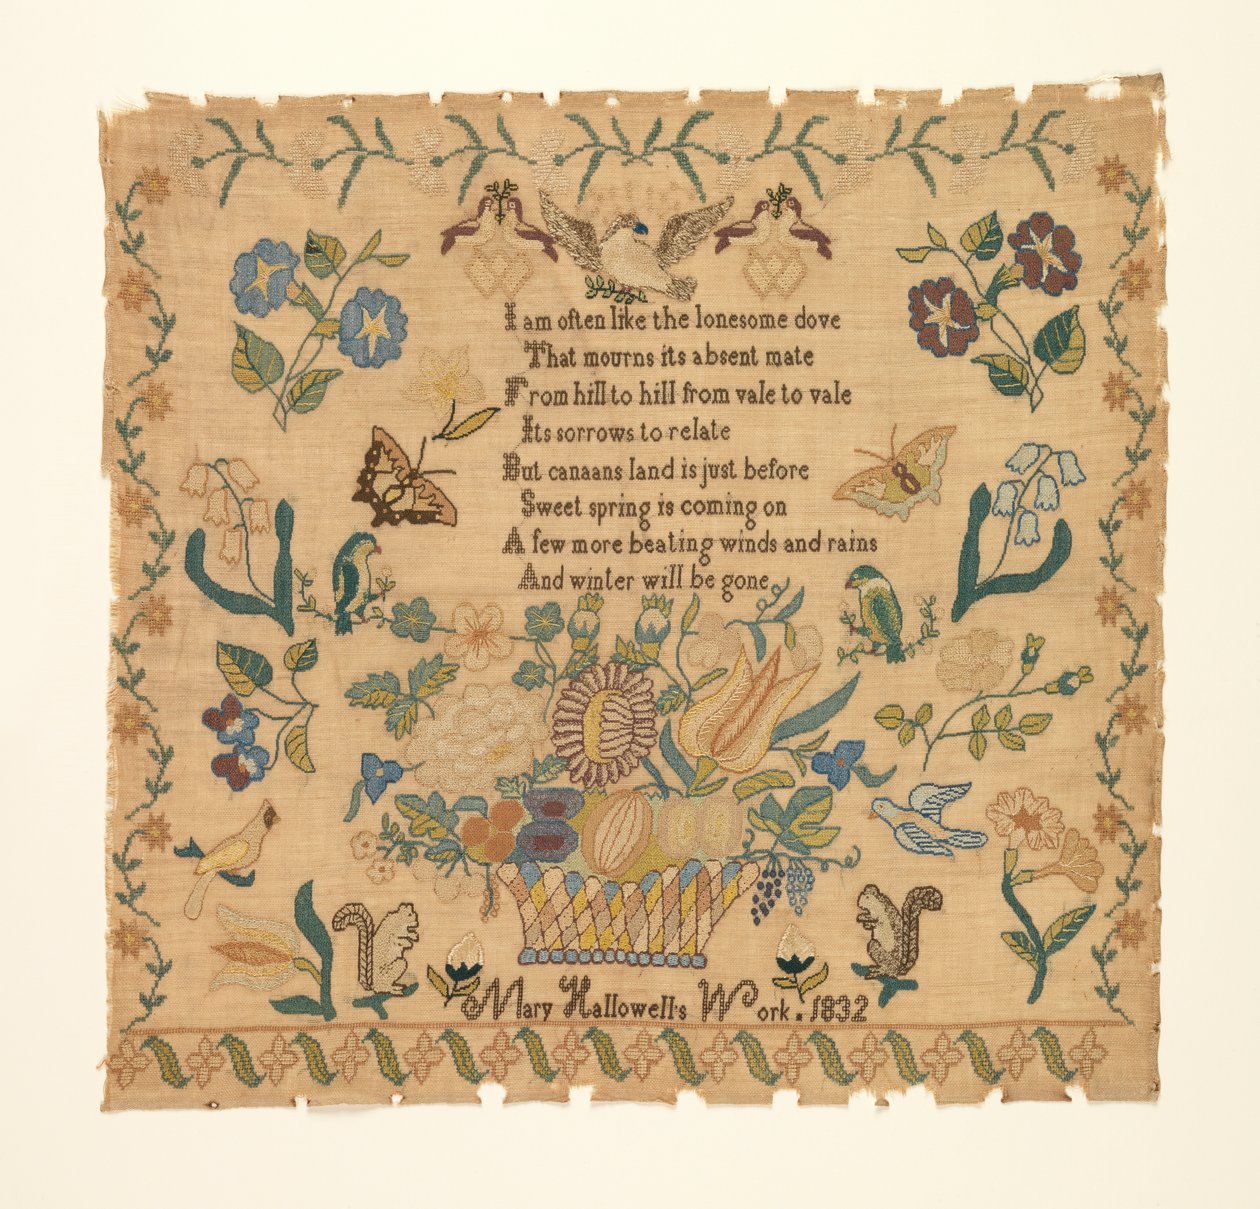 I am often like the lonesome dove
That mourns its absent mate
From hill to hill from vale to vale
Its sorrows to relate
But canaans land is just before
Sweet spring is coming on
A few more beating winds and rains
And winter will be gone
Mary Hallowell's Work. 1832